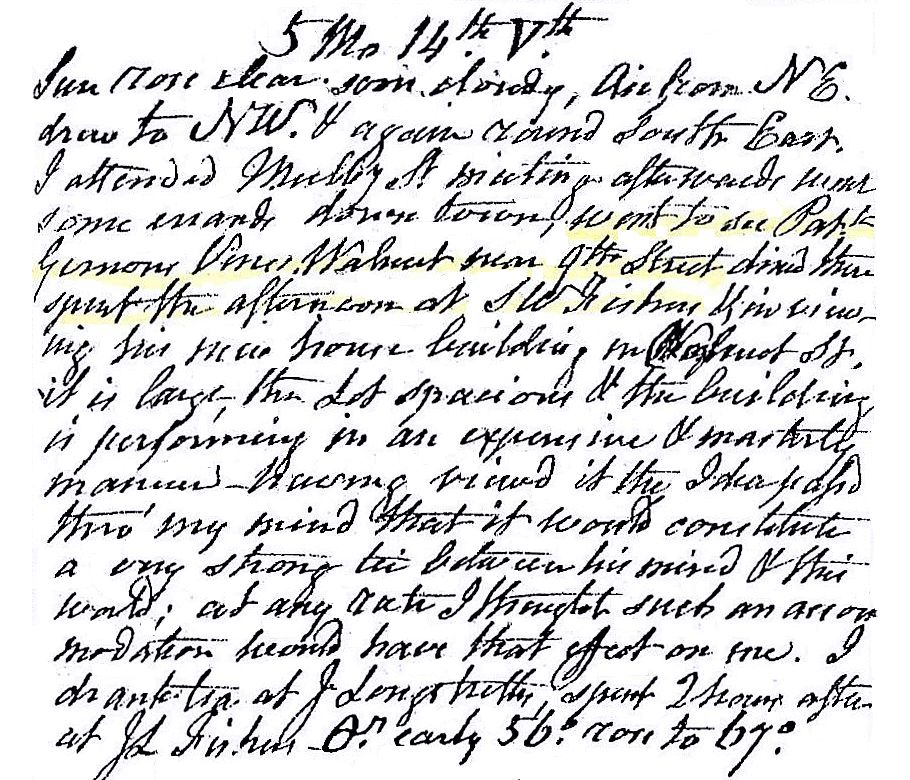 5 Mo 14th Vth
Sun rose clear som cloudy, Air from NE.
drew to NW. & again round South East.
I attended Mulby St meeting afterwards went
some errands down town, went to see Patk
Vines Walnut near 9th Street dined there
spent the afternoon at SW Fishers & in view-
ing his new house building in Walnut St.
it is large, the Lot spacious & the building
is performing in an expensive & masterly
manner - having viewed it the Idea passd
thro' my mind that it would constitute
a very strong tie between his mind & this
world; at any rate I thought such an accom
modation would have that effect on me. I
drank tea at J Longstreths, spent 2 hours after
at JL Fishers early 56° rose to 67°